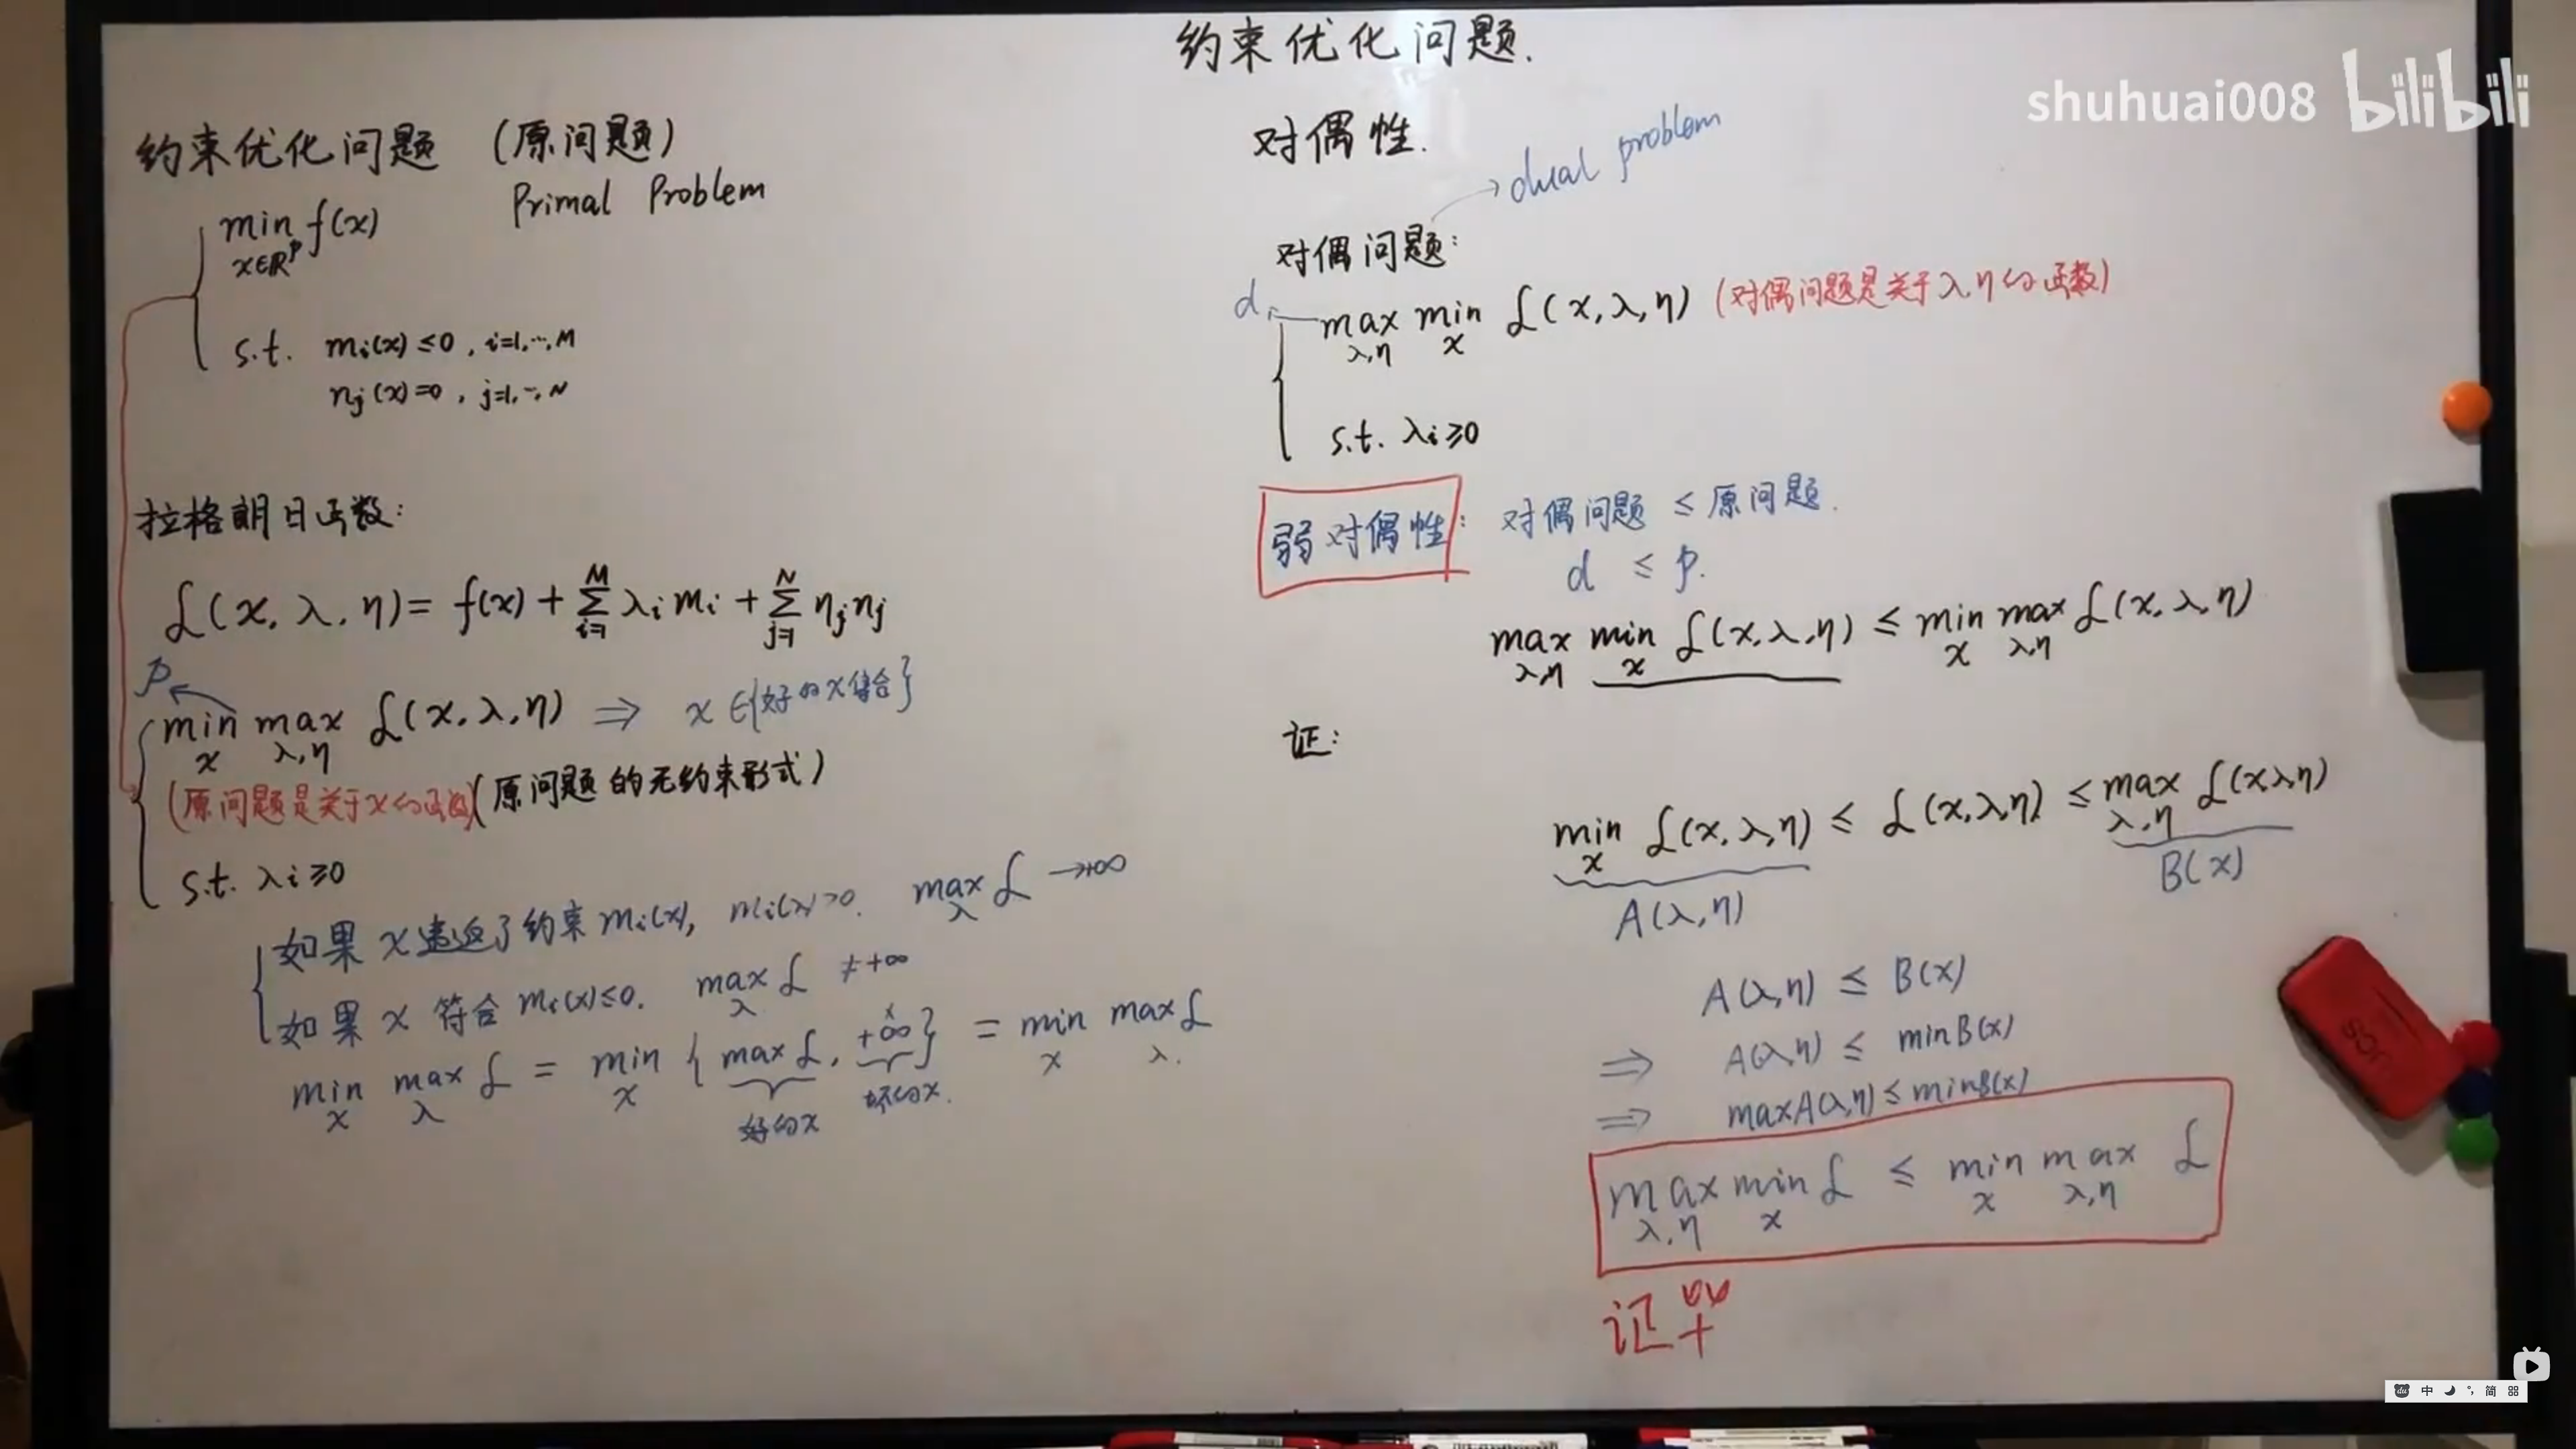 约束优化问题.
shuhuai008 bilibili
约束优化问题 (原问题)
Primal Problem
min f(x)
x∈ℝᵖ
s.t. mᵢ(x) ≤ 0, i=1,…,M
nⱼ(x)=0, j=1,…,N
拉格朗日函数:
ℒ(x, λ, η) = f(x) + Σ_{i=1}^{M} λᵢ mᵢ + Σ_{j=1}^{N} ηⱼ nⱼ
p
min max ℒ(x, λ, η) ⇒ x ∈ {好的x集合}
x λ,η
(原问题是关于x的函数) (原问题的无约束形式)
s.t. λᵢ ≥ 0
如果 x 违返了约束 mᵢ(x), mᵢ(x)>0. max_λ ℒ → +∞
如果 x 符合 mᵢ(x) ≤ 0. max_λ ℒ ≠ +∞
min_x max_λ ℒ = min_x { max ℒ, +∞ } = min_x max_λ ℒ
好的x 坏的x.
对偶性.
dual problem
对偶问题:
d
max min ℒ(x, λ, η) (对偶问题是关于λ,η的函数)
λ,η x
s.t. λᵢ ≥ 0
弱对偶性: 对偶问题 ≤ 原问题.
d ≤ p.
max min ℒ(x, λ, η) ≤ min max ℒ(x, λ, η)
λ,η x x λ,η
证:
min ℒ(x, λ, η) ≤ ℒ(x, λ, η) ≤ max ℒ(x λ, η)
x λ,η
A(λ, η) B(x)
A(λ, η) ≤ B(x)
⇒ A(λ, η) ≤ min B(x)
⇒ max A(λ, η) ≤ min B(x)
max min ℒ ≤ min max ℒ
λ,η x x λ,η
证毕
中 简